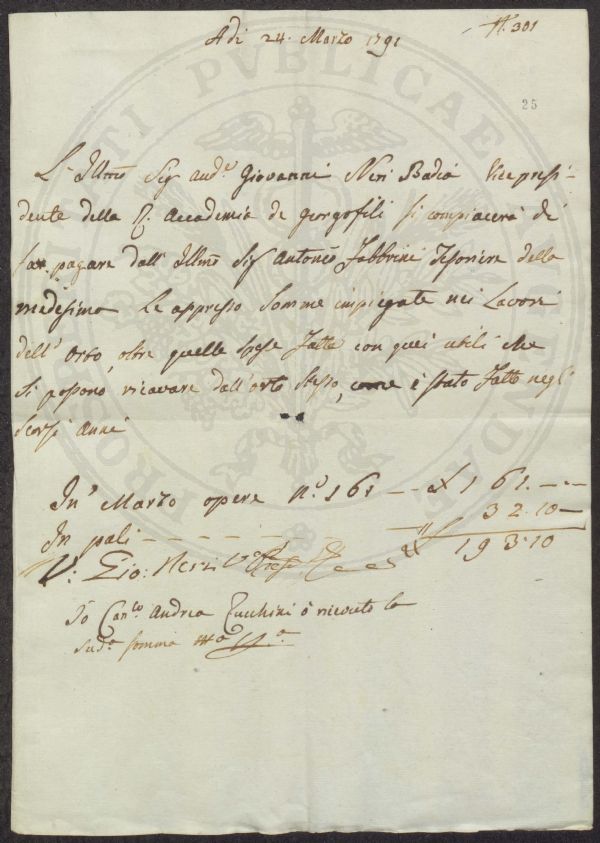 N.° 301
Adi 24. Marzo 1791
25
L'Illmo Sig Aud.e Giovanni Neri Badia Vice presi-
dente della R. Accademia de georgofili si compiacerà di
far pagare dall'Illmo Sig Antonio Fabbrini Tesoriere della
medesima le appresso somme impiegate nei Lavori
dell'orto, oltre quelle spese fatte con quei utili che
si possono ricavare dall'orto stesso, come è stato fatto negli
scorsi anni
In Marzo opere n.° 161 — 161. — —
In pali — — — — 32. 10 —
193. 10
V: Gio: Neri Vice Presid.
Io Can.co Andrea Zucchini ò ricevuto la
sud.a somma
PROSPERITATI PVBLICAE AVGENDAE